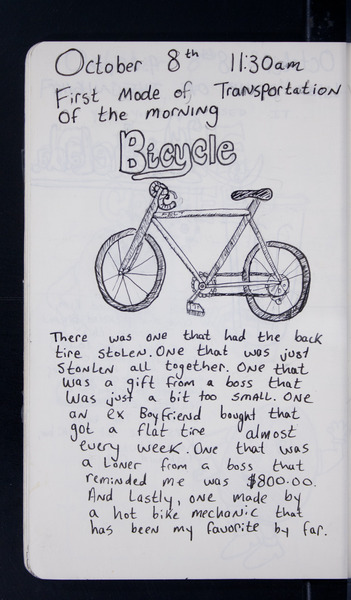 October 8th 11:30am
First Mode of Transportation
Of the morning
Bicycle
FELT
There was one that had the back
tire stolen. One that was just
stonlen all together. One that
was a gift from a boss that
was just a bit too small. One
an ex Boyfriend bought that
got a flat tire almost
every week. One that was
a loner from a boss that
reminded me was $800.00.
And lastly, one made by
a hot bike mechanic that
has been my favorite by far.